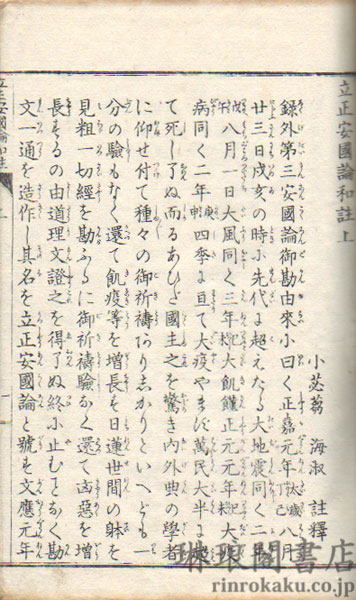 立正安國論和註上
小苾蒭 海淑 註釋
録外第三安國論御勘由來小曰く正嘉元年八月
廿三日戌亥の時小先代に超えたる大地震同く二年
八月一日大風同く三年大飢饉正元元年大疫
病同く二年四季に亘て大疫やまず萬民大半に
て死し了ぬ而るあひだ國主之を驚き内外典の學者
に仰せ付て種々の御祈禱ありしかりといへども一
分の驗もなく還て飢疫等を増長も日蓮世間の躰を
見粗一切經を勘ふるに御祈禱驗なく還て凶惡を増
長もるの由道理文證之を得了ぬ終小止むことなく勘
文一通を造作し其名を立正安國論と號も文應元年
立正安國論和註上
一
琳琅閣書店
rinrokaku.co.jp